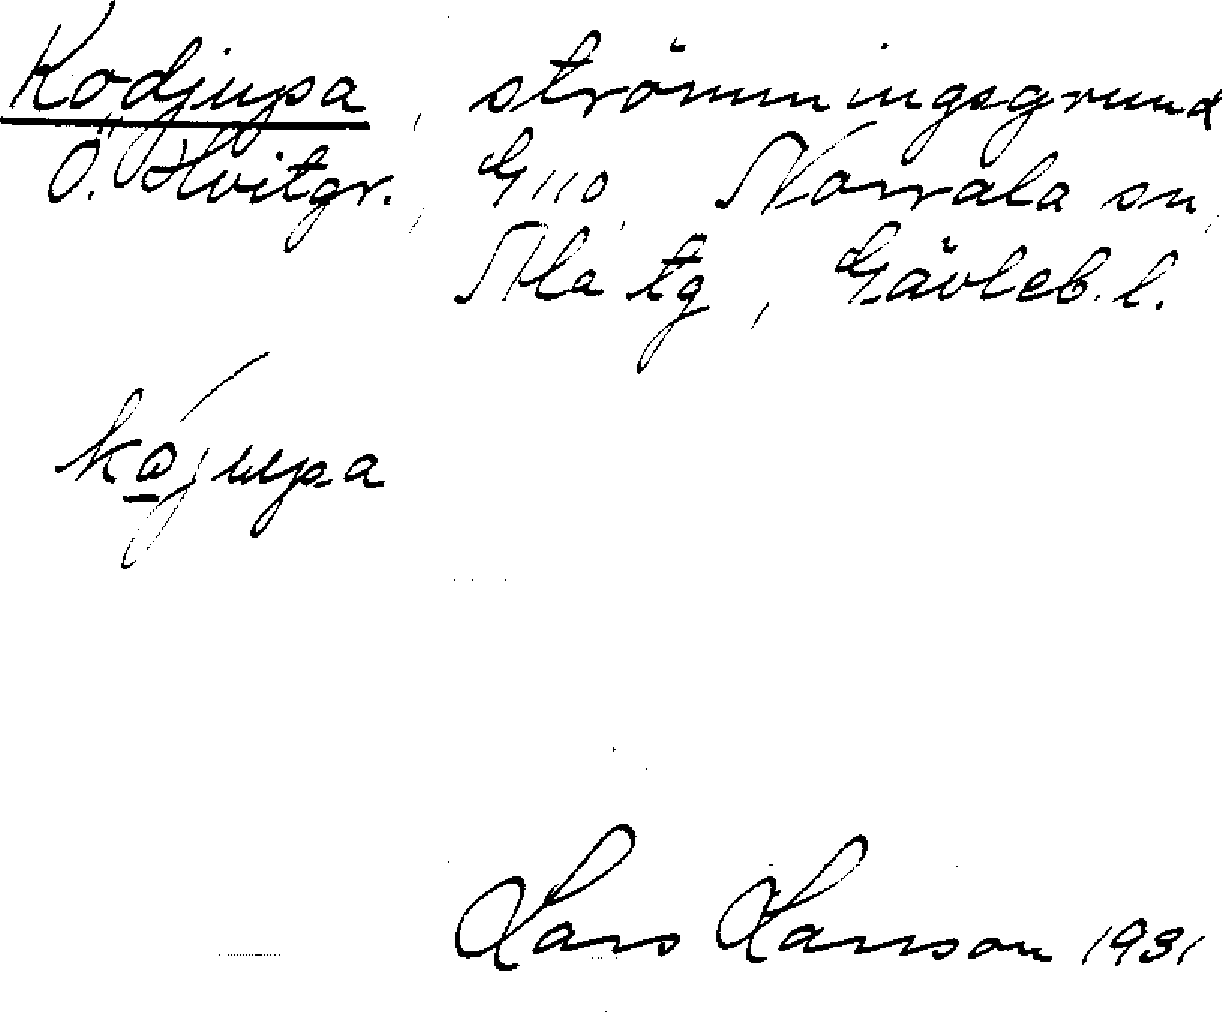 Kodjupa, strömmingsgrund
Ö. Hvitgr., G 110, Norrala sn,
Ala tg, Gävleb. l.
kojupa
Lars Larsson 1931